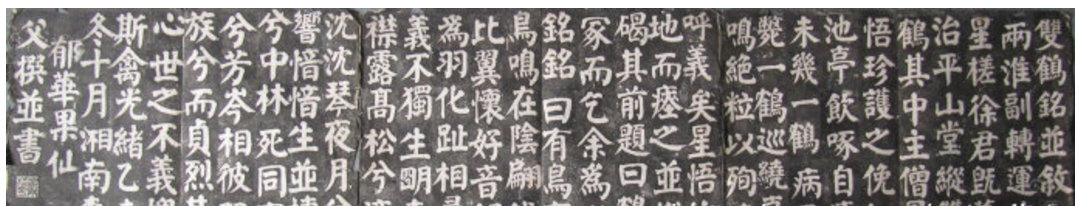 雙鶴銘並敘
兩淮副轉運
星槎徐君旣
治平山堂縱
鶴其中主僧
悟珍護之
池亭飲啄自
未幾一鶴病
斃一鶴巡繞
鳴絕粒以殉
呼義矣星悟
地而瘞之並
碣其前題曰鶴
冢而乞余為
銘銘曰有鳥
鳥鳴在陰翩
比翼懷好音
為羽化趾相
義不獨生明
襟露高松兮
沈沈琴夜月
響愔愔生並
兮中林死同
兮芳岑相彼
族兮而貞烈其
心世之不義
斯禽光緒乙
冬十月湘南
郁華果仙
父撰並書